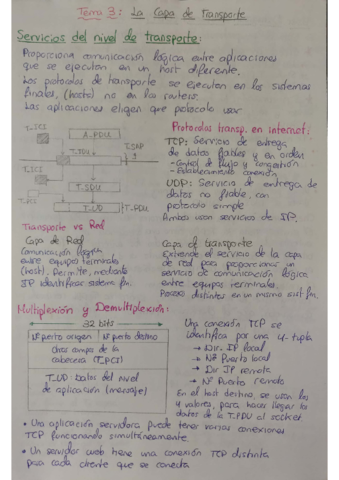 Tema 3: La Capa de Transporte
Servicios del nivel de transporte:
Proporciona comunicación lógica entre aplicaciones
que se ejecutan en un host diferente.
Los protocolos de transporte se ejecutan en los sistemas
finales, (hosts) no en los routers.
Las aplicaciones eligen que protocolo usar
T_ICI
A_PDU
T_SDU
T_SAP
T_SDU
T_UD
T_PDU
Protocolos transp. en internet:
TCP: Servicio de entrega
de datos fiables y en orden
- Control de flujo y congestión
- Establecimiento conexión
UDP: Servicio de entrega de
datos no fiable, con
protocolo simple
Ambos usan servicio de IP.
Transporte vs Red
Capa de Red
Comunicación lógica
entre equipos terminales
(host). Permite, mediante
IP identificar sistema fin.
Capa de transporte
Extiende el servicio de la capa
de red para proporcionar un
servicio de comunicación lógica
entre equipos terminales.
distintos en un mismo sist. fin.
Multiplexión y Demultiplexión:
32 bits
Nº puerto origen
Nº puerto destino
Otros campos de la
cabecera (T_PCI)
T_UD: Datos del nivel
de aplicación (mensaje)
Una conexión TCP se
identifica por una 4-tupla
→ Dir IP local
→ Nº Puerto local
→ Dir IP remota
→ Nº Puerto remoto
En el host destino, se usan los
4 valores, para hacer llegar los
datos de la T_PDU al socket
• Una aplicación servidora puede tener varias conexiones
TCP funcionando simultáneamente.
• Un servidor web tiene una conexión TCP distinta
para cada cliente que se conecta